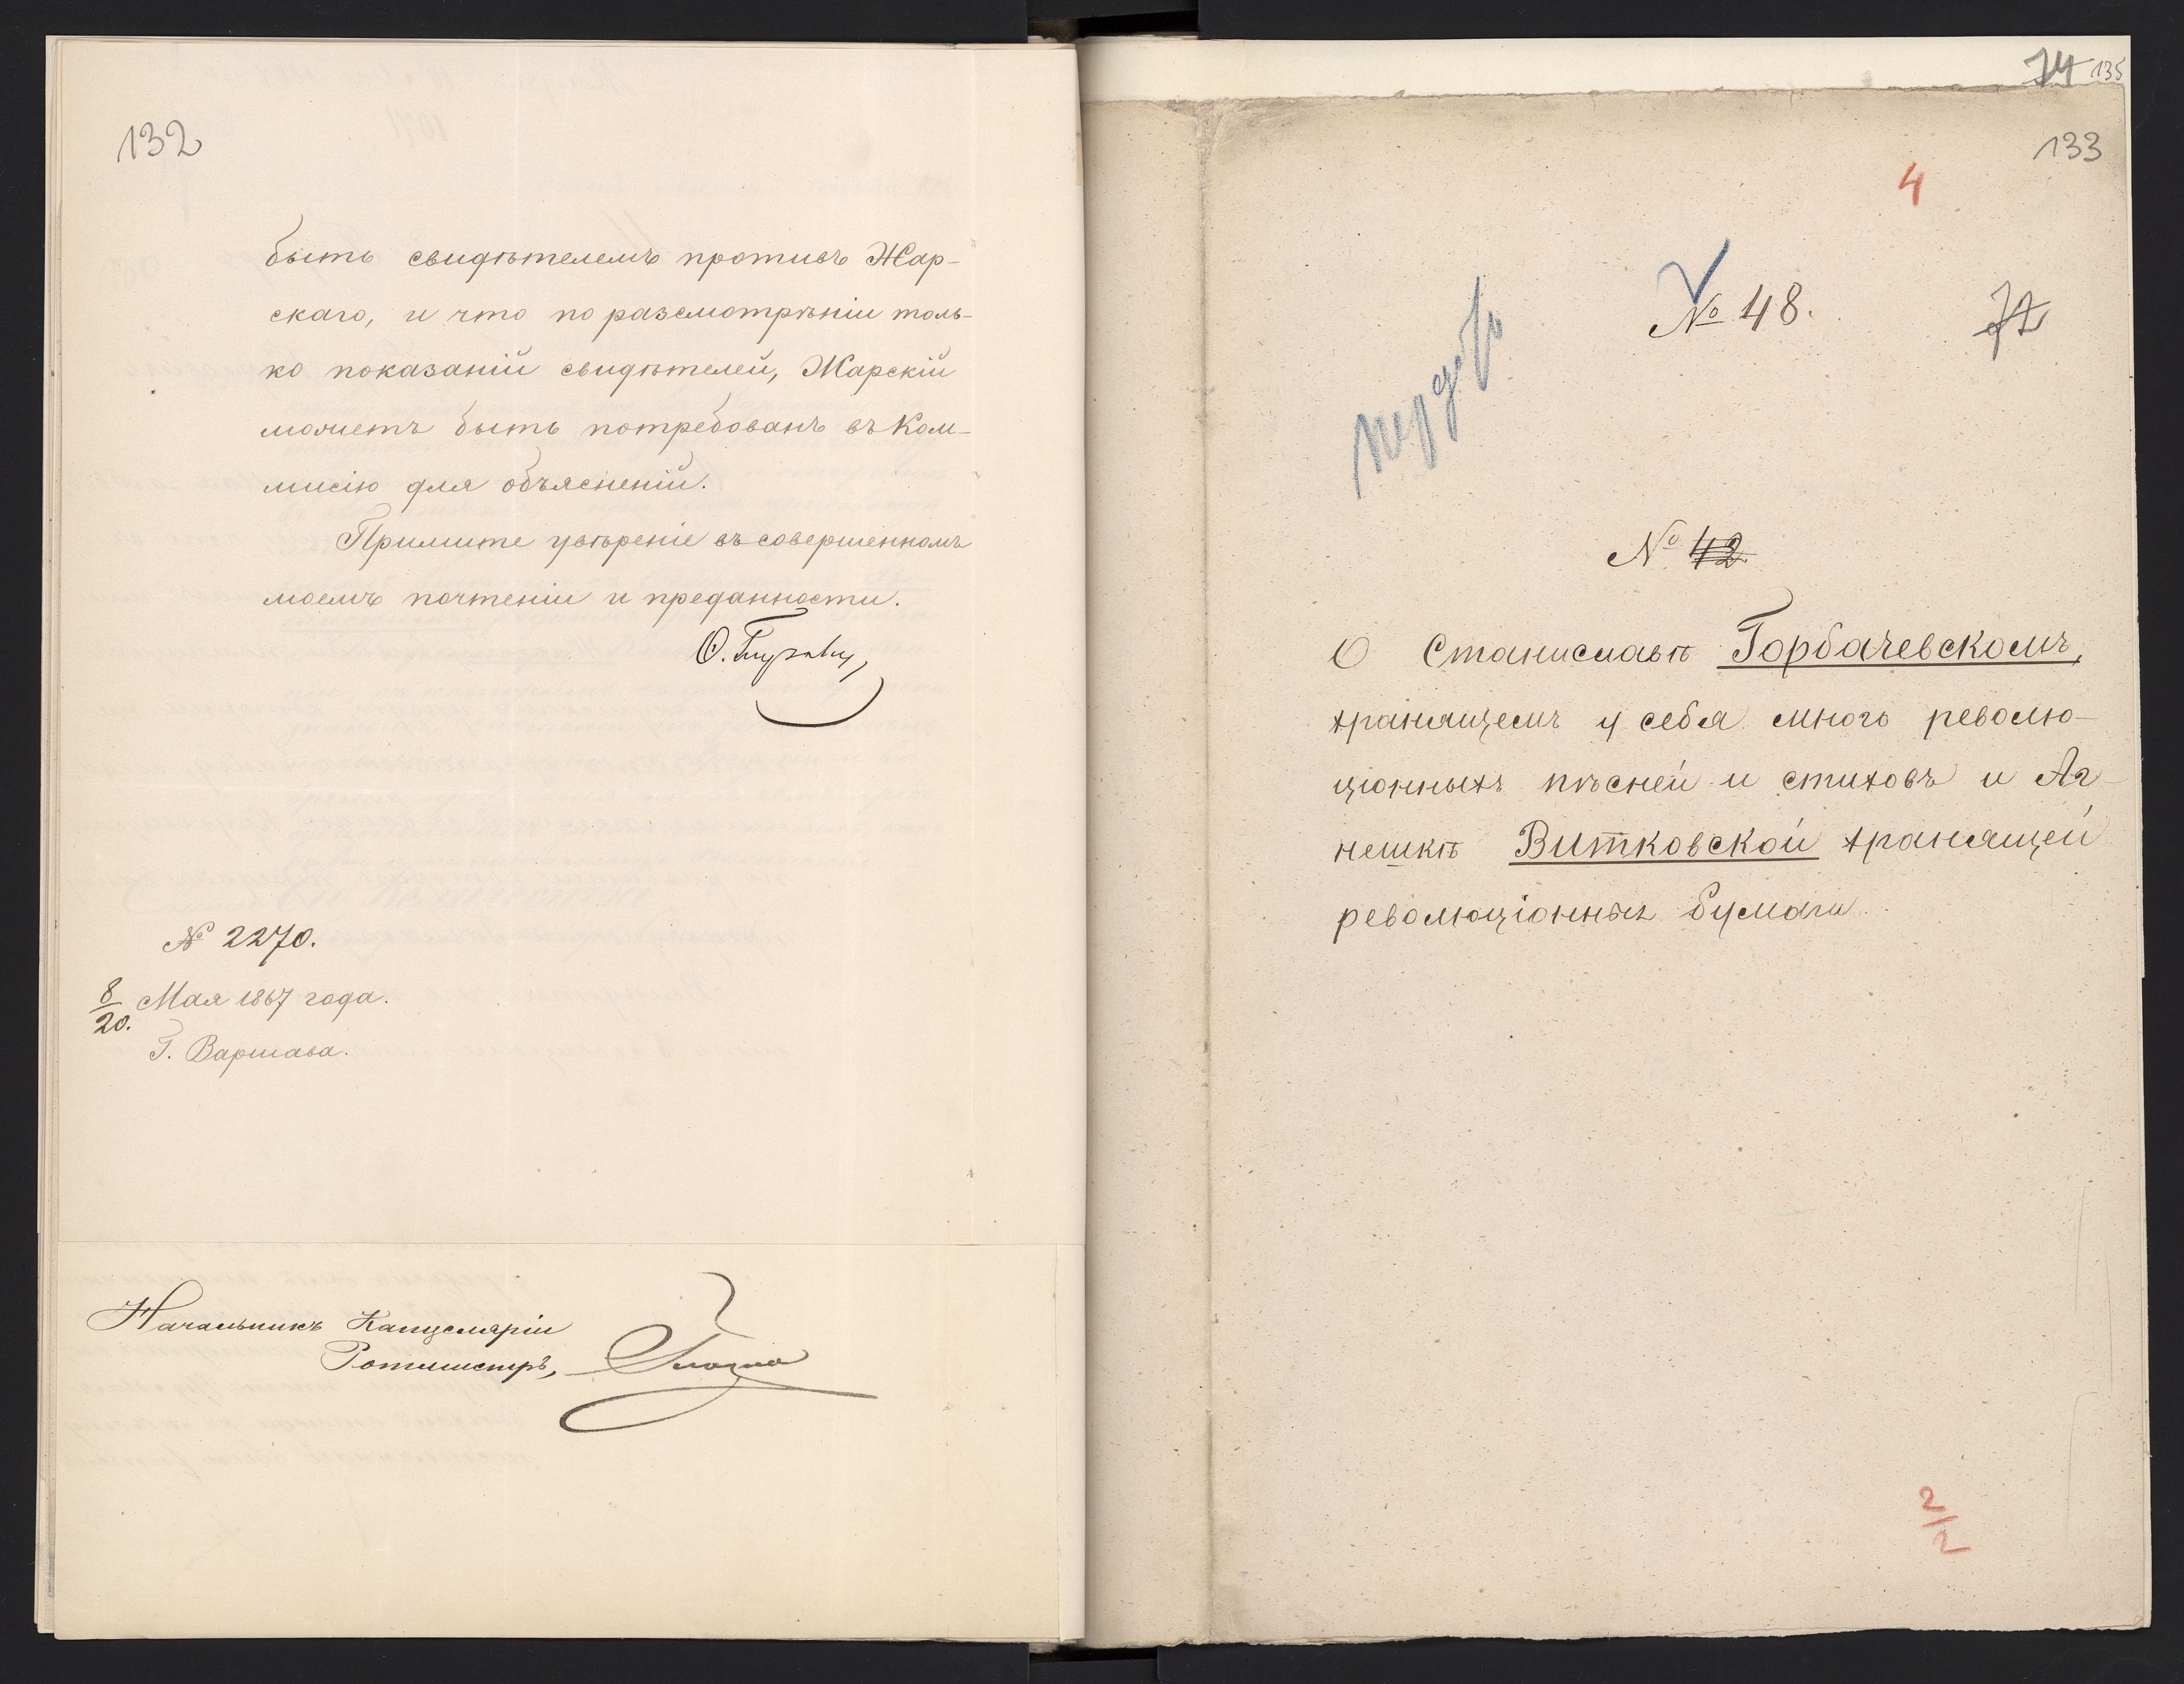 132
быть свидѣтелемъ противъ Жар-
скаго, и что по разсмотрѣніи толь-
ко показаній свидѣтелей, Жарскій
можетъ быть потребованъ въ Ком-
мисію для объясненій.
Примите увѣреніе въ совершенномъ
моемъ почтеніи и преданности.
№ 2270.
8/20. Мая 1867 года.
Г. Варшава.
Начальникъ Канцеляріи
Ротмистръ,
74 135
133
4
№ 48.
№ 42
О Станиславѣ Горбачевскомъ,
хранящемъ у себя много револю-
ціонныхъ пѣсней и стиховъ и Аг-
нешкѣ Витковской хранящей
революціонныя бумаги
2/2